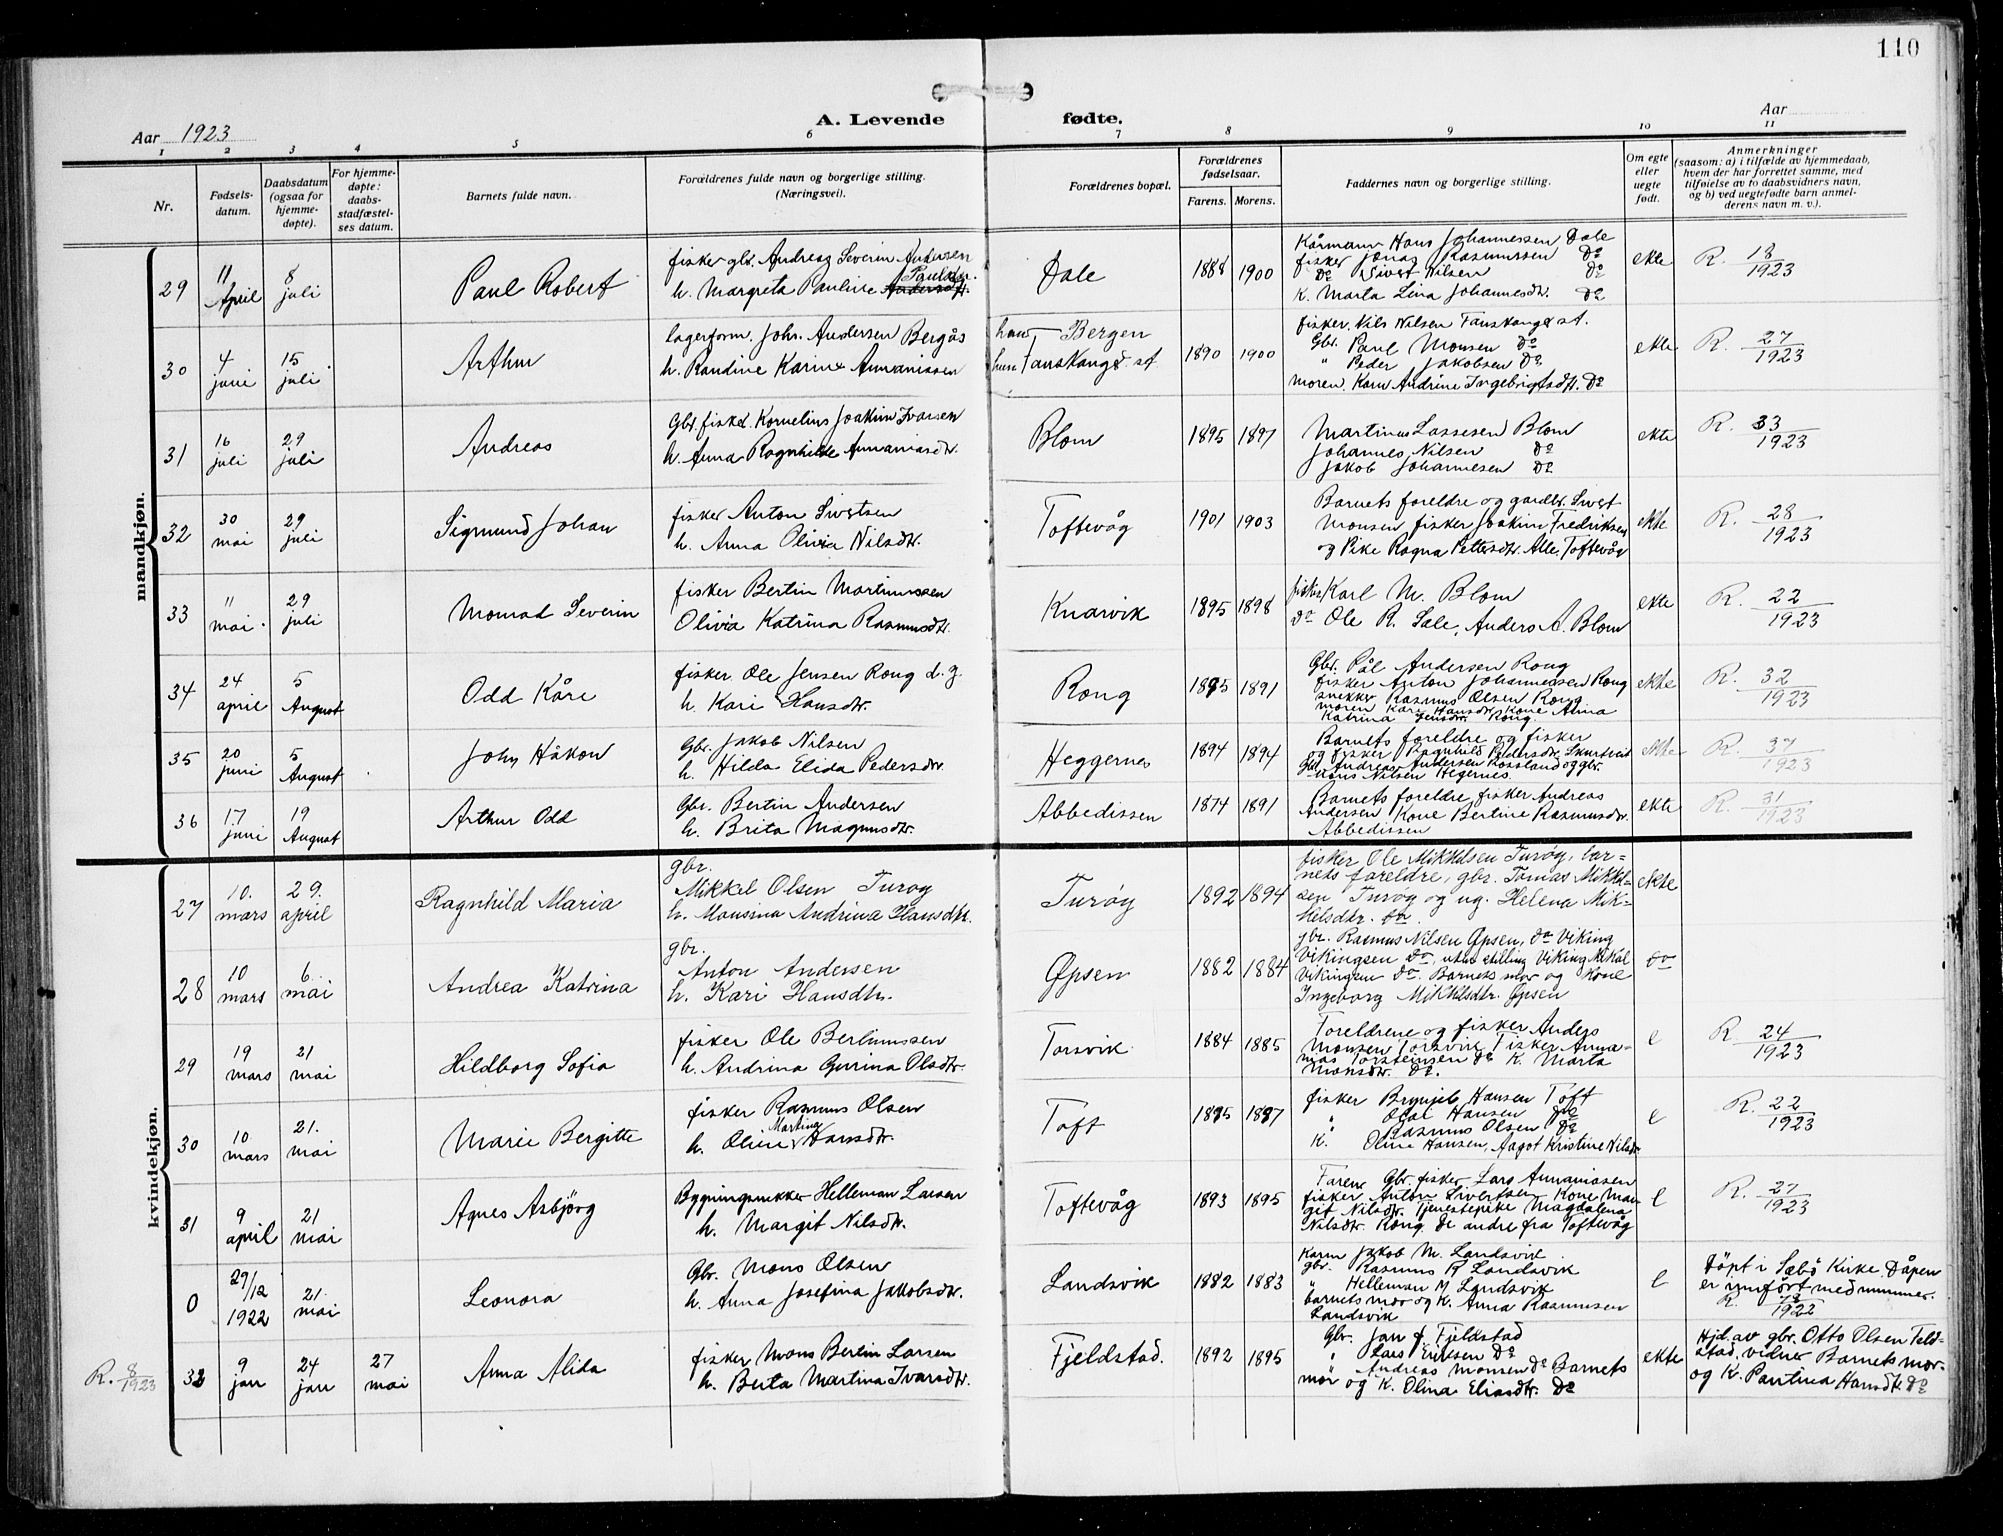 110
Aar 1923
A. Levende fødte.
Aar
1 2 3 4 5 6 7 8 9 10 11
Nr.
Fødsels-
datum.
Daabsdatum
(ogsaa for
hjemme-
døpte).
For hjemme-
døpte:
daabs-
stadfæstel-
ses datum.
Barnets fulde navn.
Forældrenes fulde navn og borgerlige stilling.
(Næringsvei).
Forældrenes bopæl.
Forældrenes
fødselsaar.
Farens. Morens.
Faddernes navn og borgerlige stilling.
Om egte
eller
uegte
født.
Anmerkninger
(saasom: a) i tilfælde av hjemmedaab,
hvem der har forrettet samme, med
tilføielse av to daabsvidners navn,
og b) ved uegtefødte barn anmel-
derens navn m. v.).
mandkjøn.
29
11 April
8 juli
Paul Robert
fisker gbr. Andreas Severin Andersen
h. Margreta Pauline Paulsdtr.
Dale
1888 1900
Kårmann Hans Johannessen Dale
fisker Jonas Rasmussen Do
Do Sivert Nilsen Do
K. Marta Lina Johannesdtr. Do
ekte
R. 18/1923
30
4 juni
15 juli
Arthur
lagerform. Johs. Andersen Bergås
h. Randine Karine Annanissen
han Bergen
hun Tanskanges st.
1890 1900
fisker Nils Nilsen Tanskanges st.
Gbr. Paul Monsen Do
" Peder Jakobsen Do
moren. Kone Andrine Ingebrigtsdtr. Do
ekte
R. 27/1923
31
16 juli
29 juli
Andreas
Gbr. fisker Kornelius Joakim Ivarsen
h. Anna Ragnhilde Annaniasdtr.
Blom
1895 1897
Martinus Lassesen Blom
Johannes Nilsen Do
Jakob Johannesen Do
ekte
R. 33/1923
32
30 mai
29 juli
Sigmund Johan
fisker Anton Sivertsen
h. Anna Olivia Nilsdtr.
Toftevåg
1901 1903
Barnets foreldre og gardbr. Sivert
Monsen fisker Joakim Fredriksen
og Pike Ragna Pettersdtr. Alle Toftevåg
ekte
R. 28/1923
33
11 mai
29 juli
Monrad Severin
fisker Bertin Martinussen
Olivia Katrina Rasmusdtr.
Knarvik
1895 1898
fisker Karl M. Blom
Do Ole R. Sæle, Anders A. Blom
ekte
R. 22/1923
34
24 april
5 August
Odd Kåre
fisker Ole Jensen Rong d. y.
h. Kari Hansdtr.
Rong
1895 1891
Gbr. Pål Andersen Rong
fisker Anton Johannessen Rong
snekker Rasmus Olsen Rong
moren Kari Hansdtr. Kone Anna
Katrina Jensdtr. Rong.
ekte
R. 32/1923
35
20 juni
5 August
John Håkon
Gbr. Jakob Nilsen
h. Hilda Elida Pedersdtr.
Heggernes
1894 1894
Barnets foreldre og fisker
og fisker Ragnhild Pedersdtr. Skurtveit
Gbr. Andreas Andersen Rossland og gbr.
Hans Nilsen Hegernes.
ekte
R. 37/1923
36
17 juni
19 August
Arthur Odd
Gbr. Bertin Andersen
h. Brita Magnusdtr.
Abbedissen
1874 1891
Barnets foreldre, fisker Andreas
Andersen Kone Bertine Rasmusdtr.
Abbedissen
ekte
R. 31/1923
kvindekjøn.
27
10. mars
29. april
Ragnhild Maria
gbr.
Mikkel Olsen Turøy
h. Monsina Andrina Hansdtr.
Turøy
1892 1894
fisker Ole Mikkelsen Turøy, bar=
nets foreldre, gbr. Tomas Mikkel=
sen Turøy og ug. Helena Mik=
kelsdtr. do.
ekte
28
10 mars
6. mai
Andrea Katrina
gbr.
Anton Andersen
h. Kari Hansdtr.
Øpsen
1882 1884
gbr. Rasmus Nilsen Øpsen, do Viking
Vikingsen do, uten stilling Viking Mikal
Vikingsen do. Barnets mor og Kone
Ingeborg Mikkelsdtr. Øpsen
do
29
19 mars
21 mai
Hildborg Sofia
fisker Ole Bertinussen
h. Andrina Gurina Olsdtr.
Torsvik
1884 1885
Foreldrene og fisker Anders
Monsen Torsvik Fisker Anna=
nias Torsteinsen Do K. Marta
Monsdtr. Do.
e
R. 24/1923
30
10. mars
21. mai
Marie Bergitte
fisker Rasmus Olsen
h. Oline Martina Hansdtr.
Toft
1885 1887
fisker Brynjel Hansen Toft
" Olai Hansen Do
" Rasmus Olsen Do
K. Oline Hansen, Aagot Kristine Nilsdtr.
e
R. 22/1923
31
9 april
21 mai
Agnes Asbjörg
Bygningsnekker Helleman Larsen
h. Margit Nilsdtr.
Toftevåg
1893 1895
Faren Gbr. fisker Lars Annanissen
fisker Anton Sivertsen Kone Mar-
git Nilsdtr. Tjenestepike Magdalena
Nilsdtr. Rong. De andre fra Toftevåg
e
R. 27/1923
0
29/12 1922
21. mai
Leonora
Gbr. Mons Olsen
h. Anna Josefina Jakobsdtr.
Landsvik
1882 1883
Kårm Jakob M. Landsvik
gbr. Rasmus R. Landsvik
" Helleman M. Landsvik
barnets mor og K. Anna Rasmussen
Landsvik
e
Döpt i Sæbö Kirke. Dåpen
er innfört med nummer.
R. 1922
R. 8/1923
32
9 jan
24 jan
27 mai
Anna Alida
fisker Mons Bertin Larsen
h. Berta Martina Ivarsdtr.
Fjeldstad.
1892 1895
Gbr. Jan J. Fjeldstad
" Lars Eriksen Do
" Andreas Monsen Do Barnets
mor og K. Olina Eliasdtr. Do
ekte
Hjd. av gbr. Otto Olsen Feld-
stad, vidner Barnets mor
og K. Paulina Hansdtr. Do